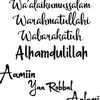 Wa'alaikumussalam
Warahmatullahi
Wabarakatuh
Alhamdulillah
Aamiin
Yaa Robbal
Aalami